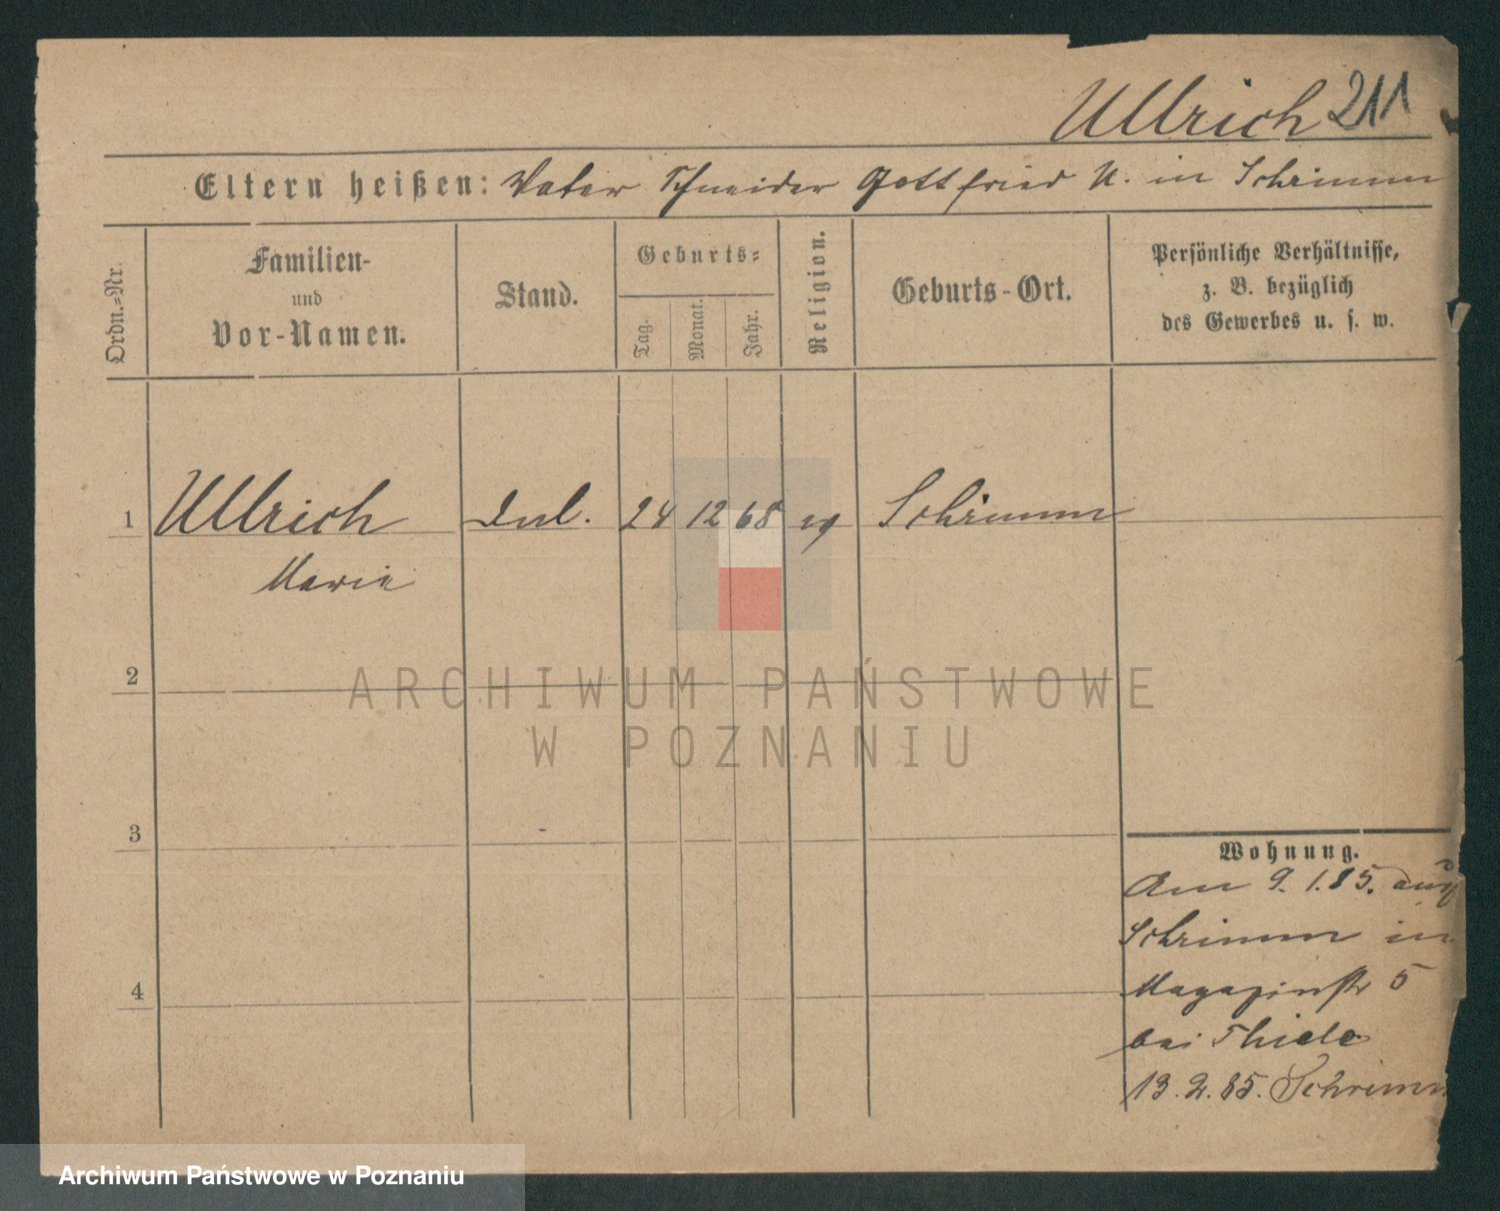 Ullrich 211
Eltern heißen: Vater Schneider Gottfried U. in Schrimm
Ordn.-Nr.
Familien-
und
Vor-Namen.
Stand.
Geburts-
Tag.
Monat.
Jahr.
Religion.
Geburts-Ort.
Persönliche Verhältnisse,
z. B. bezüglich
des Gewerbes u. s. w.
1 Ullrich 24 12 68 ev Schrimm
Marie
2
ARCHIWUM PAŃSTWOWE
W POZNANIU
3
Wohnung.
Am 9. 1. 85. aus
Schrimm in
Magazinstr 5
bei Thiele
13. 2. 85. Schrimm
4
Archiwum Państwowe w Poznaniu